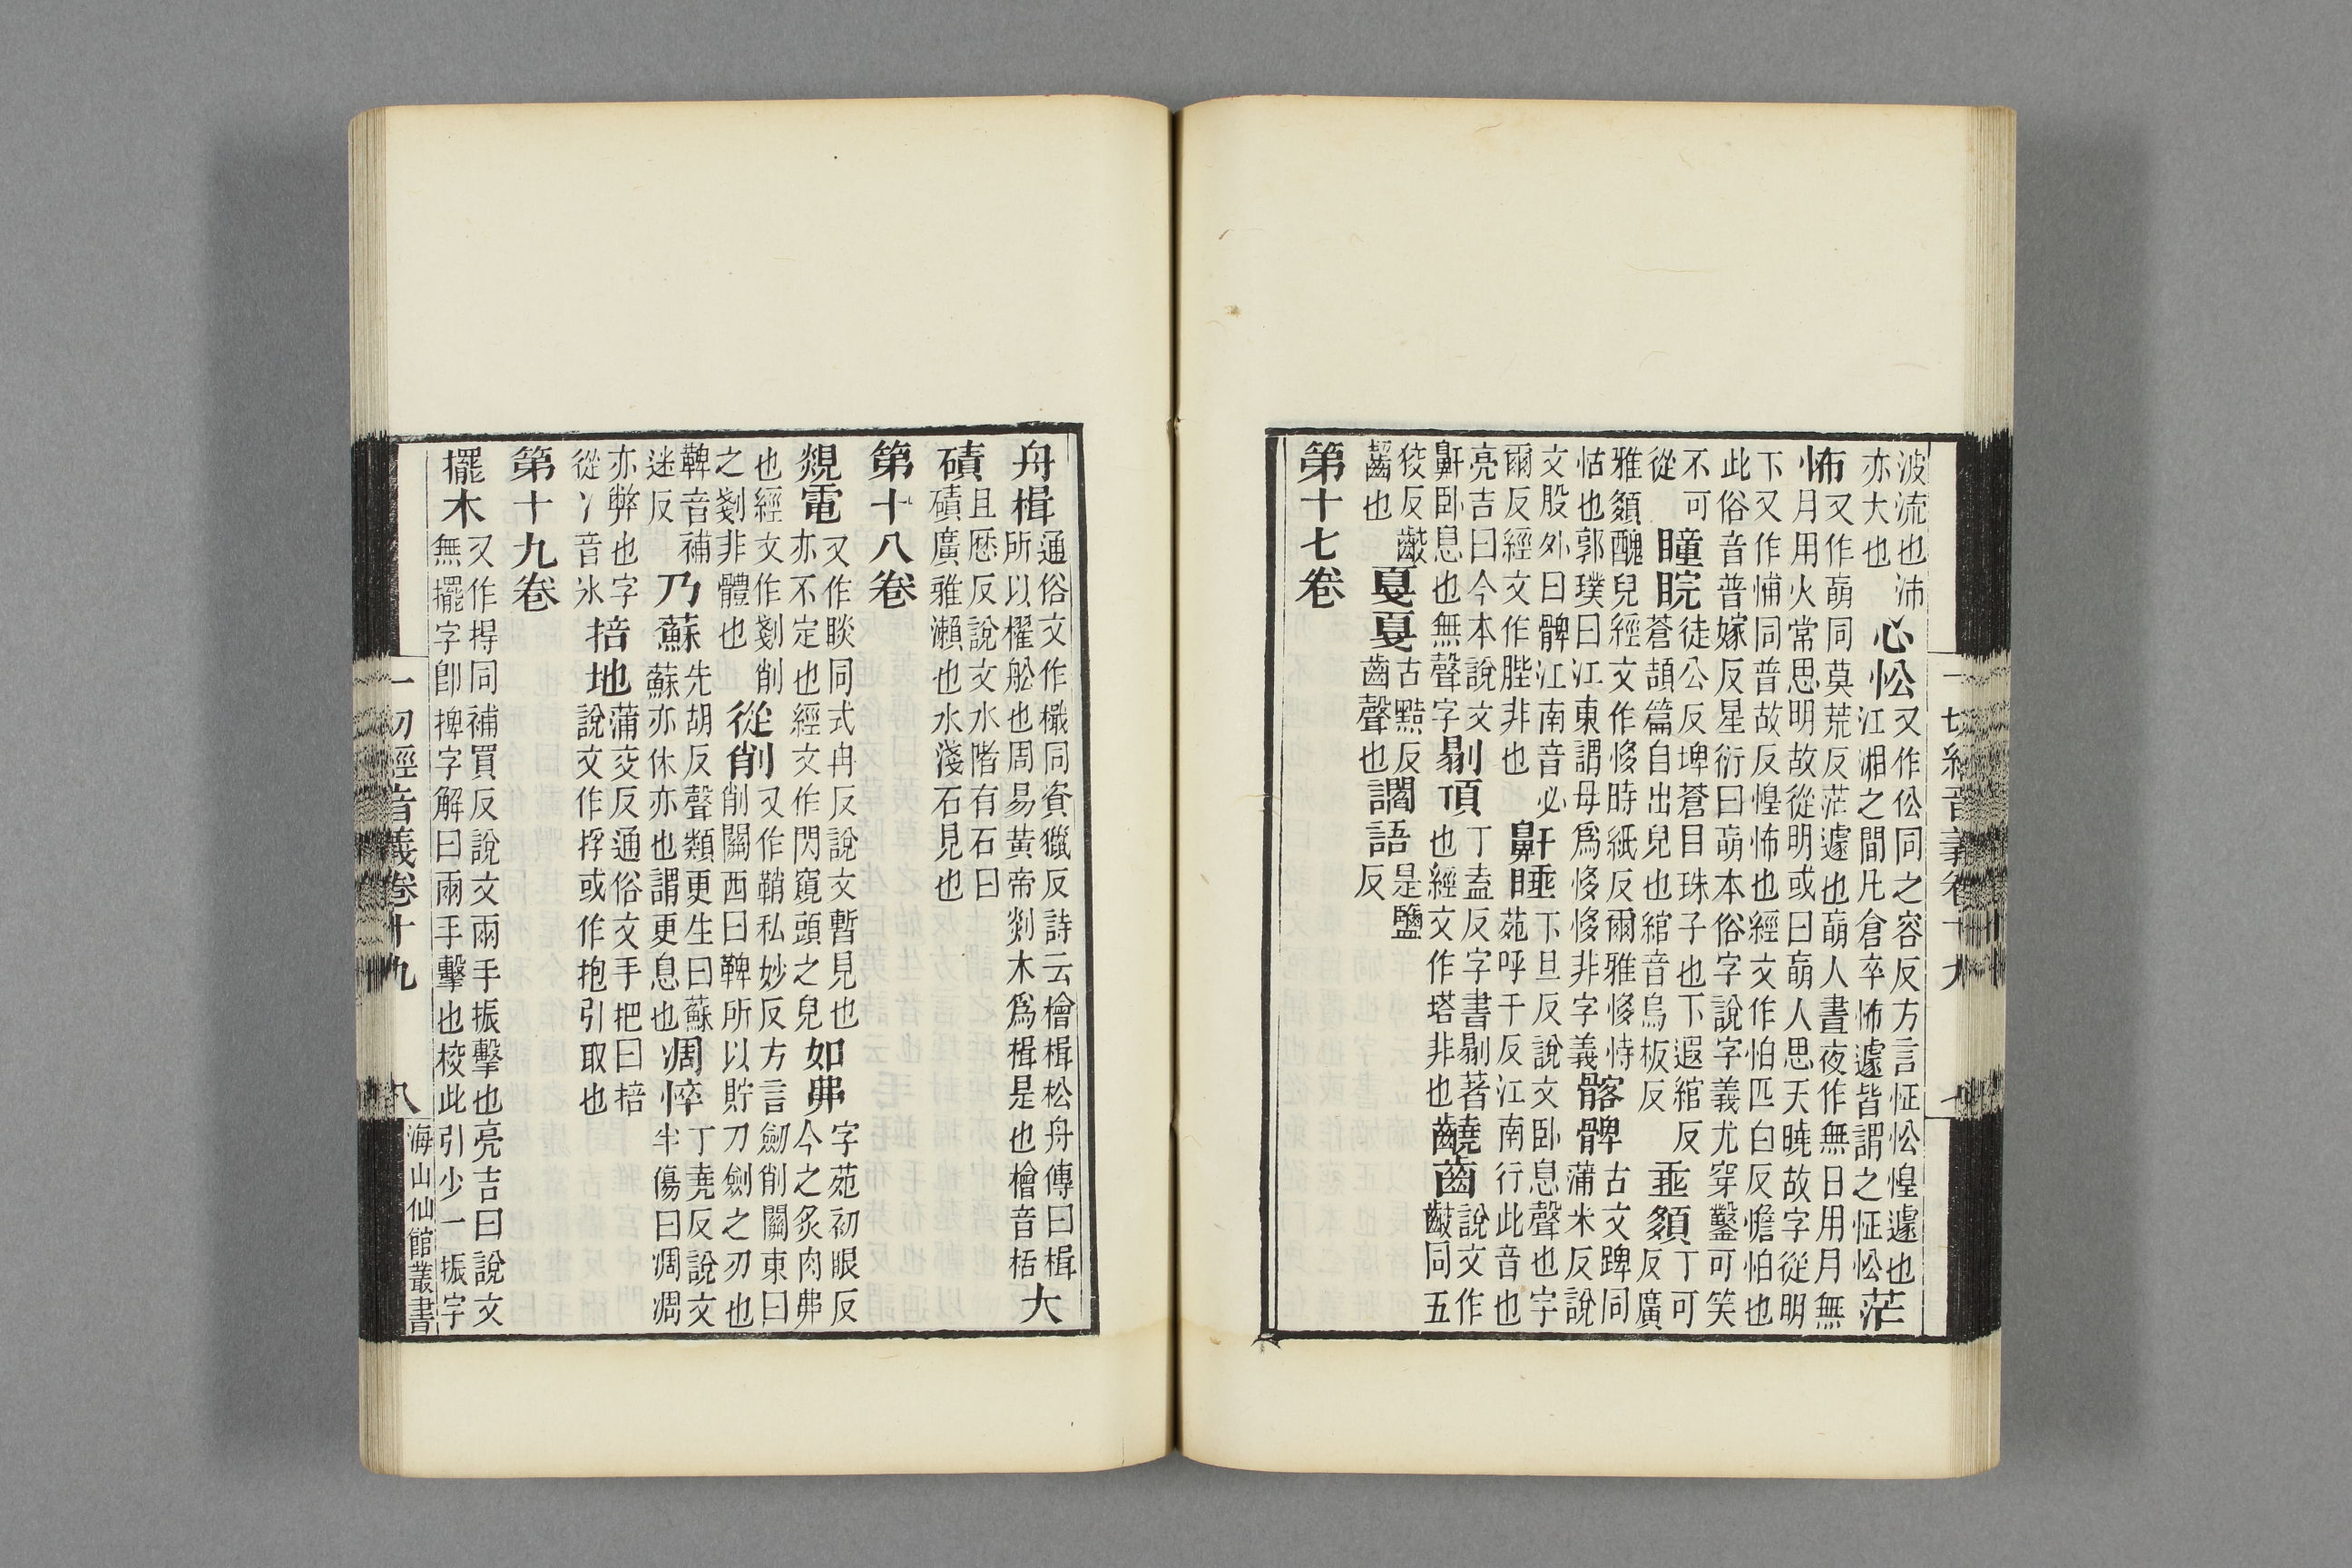 一切經音義卷十九
波流也沛
亦大也
心忪
又作伀同之容反方言怔忪惶遽也
江湘之間凡倉卒怖遽皆謂之怔忪
茫
怖
又作萌同莫荒反茫遽也萌人晝夜作無日用月無
月用火常思明故從明或曰萌人思天曉故字從明
下又作悑同普故反惶怖也經文作怕匹白反憺怕也
此俗音普嫁反星衍曰萌本俗字說字義尤穿鑿可笑
不可
從
瞳睆
徒公反埤蒼目珠子也下遐綰反
蒼頡篇自出皃也綰音烏板反
埀顡
丁可
反廣
雅顡醜皃經文作恀時紙反爾雅恀恃
怙也郭璞曰江東謂母爲恀恀非字義
髂髀
古文䠋同
蒲米反說
文股外曰髀江南音必
爾反經文作䏶非也
鼾睡
下旦反說文臥息聲也字
苑呼干反江南行此音也
亮吉曰今本說文
鼾臥息也無聲字
剔頂
丁盍反字書剔著
也經文作塔非也
䶧齒
說文作
齩同五
狡反齩
齧也
戛戛
古黠反
齒聲也
讇語
是鹽
反
第十七卷
舟楫
通俗文作檝同資獵反詩云檜楫松舟傳曰楫
所以櫂舩也周易黃帝剡木爲楫是也檜音栝
大
磧
且歷反說文水陼有石曰
磧廣雅瀨也水淺石見也
第十八卷
覢電
又作睒同式冉反說文暫見也
亦不定也經文作閃窺頭之皃
如弗
字苑初眼反
今之炙肉弗
也經文作剗削
之剗非體也
從削
又作鞘私妙反方言劒削關東曰
削關西曰鞞所以貯刀劍之刃也
鞞音補
迷反
乃蘇
先胡反聲類更生曰蘇
蘇亦休亦也謂更息也
凋悴
丁堯反說文
半傷曰凋凋
亦弊也字
從冫音氷
掊地
蒲交反通俗文手把曰掊
說文作捊或作抱引取也
第十九卷
擺木
又作捭同補買反說文兩手振擊也亮吉曰說文
無擺字卽捭字解曰兩手擊也校此引少一振字
一切經音義卷十九
八
海山仙館叢書